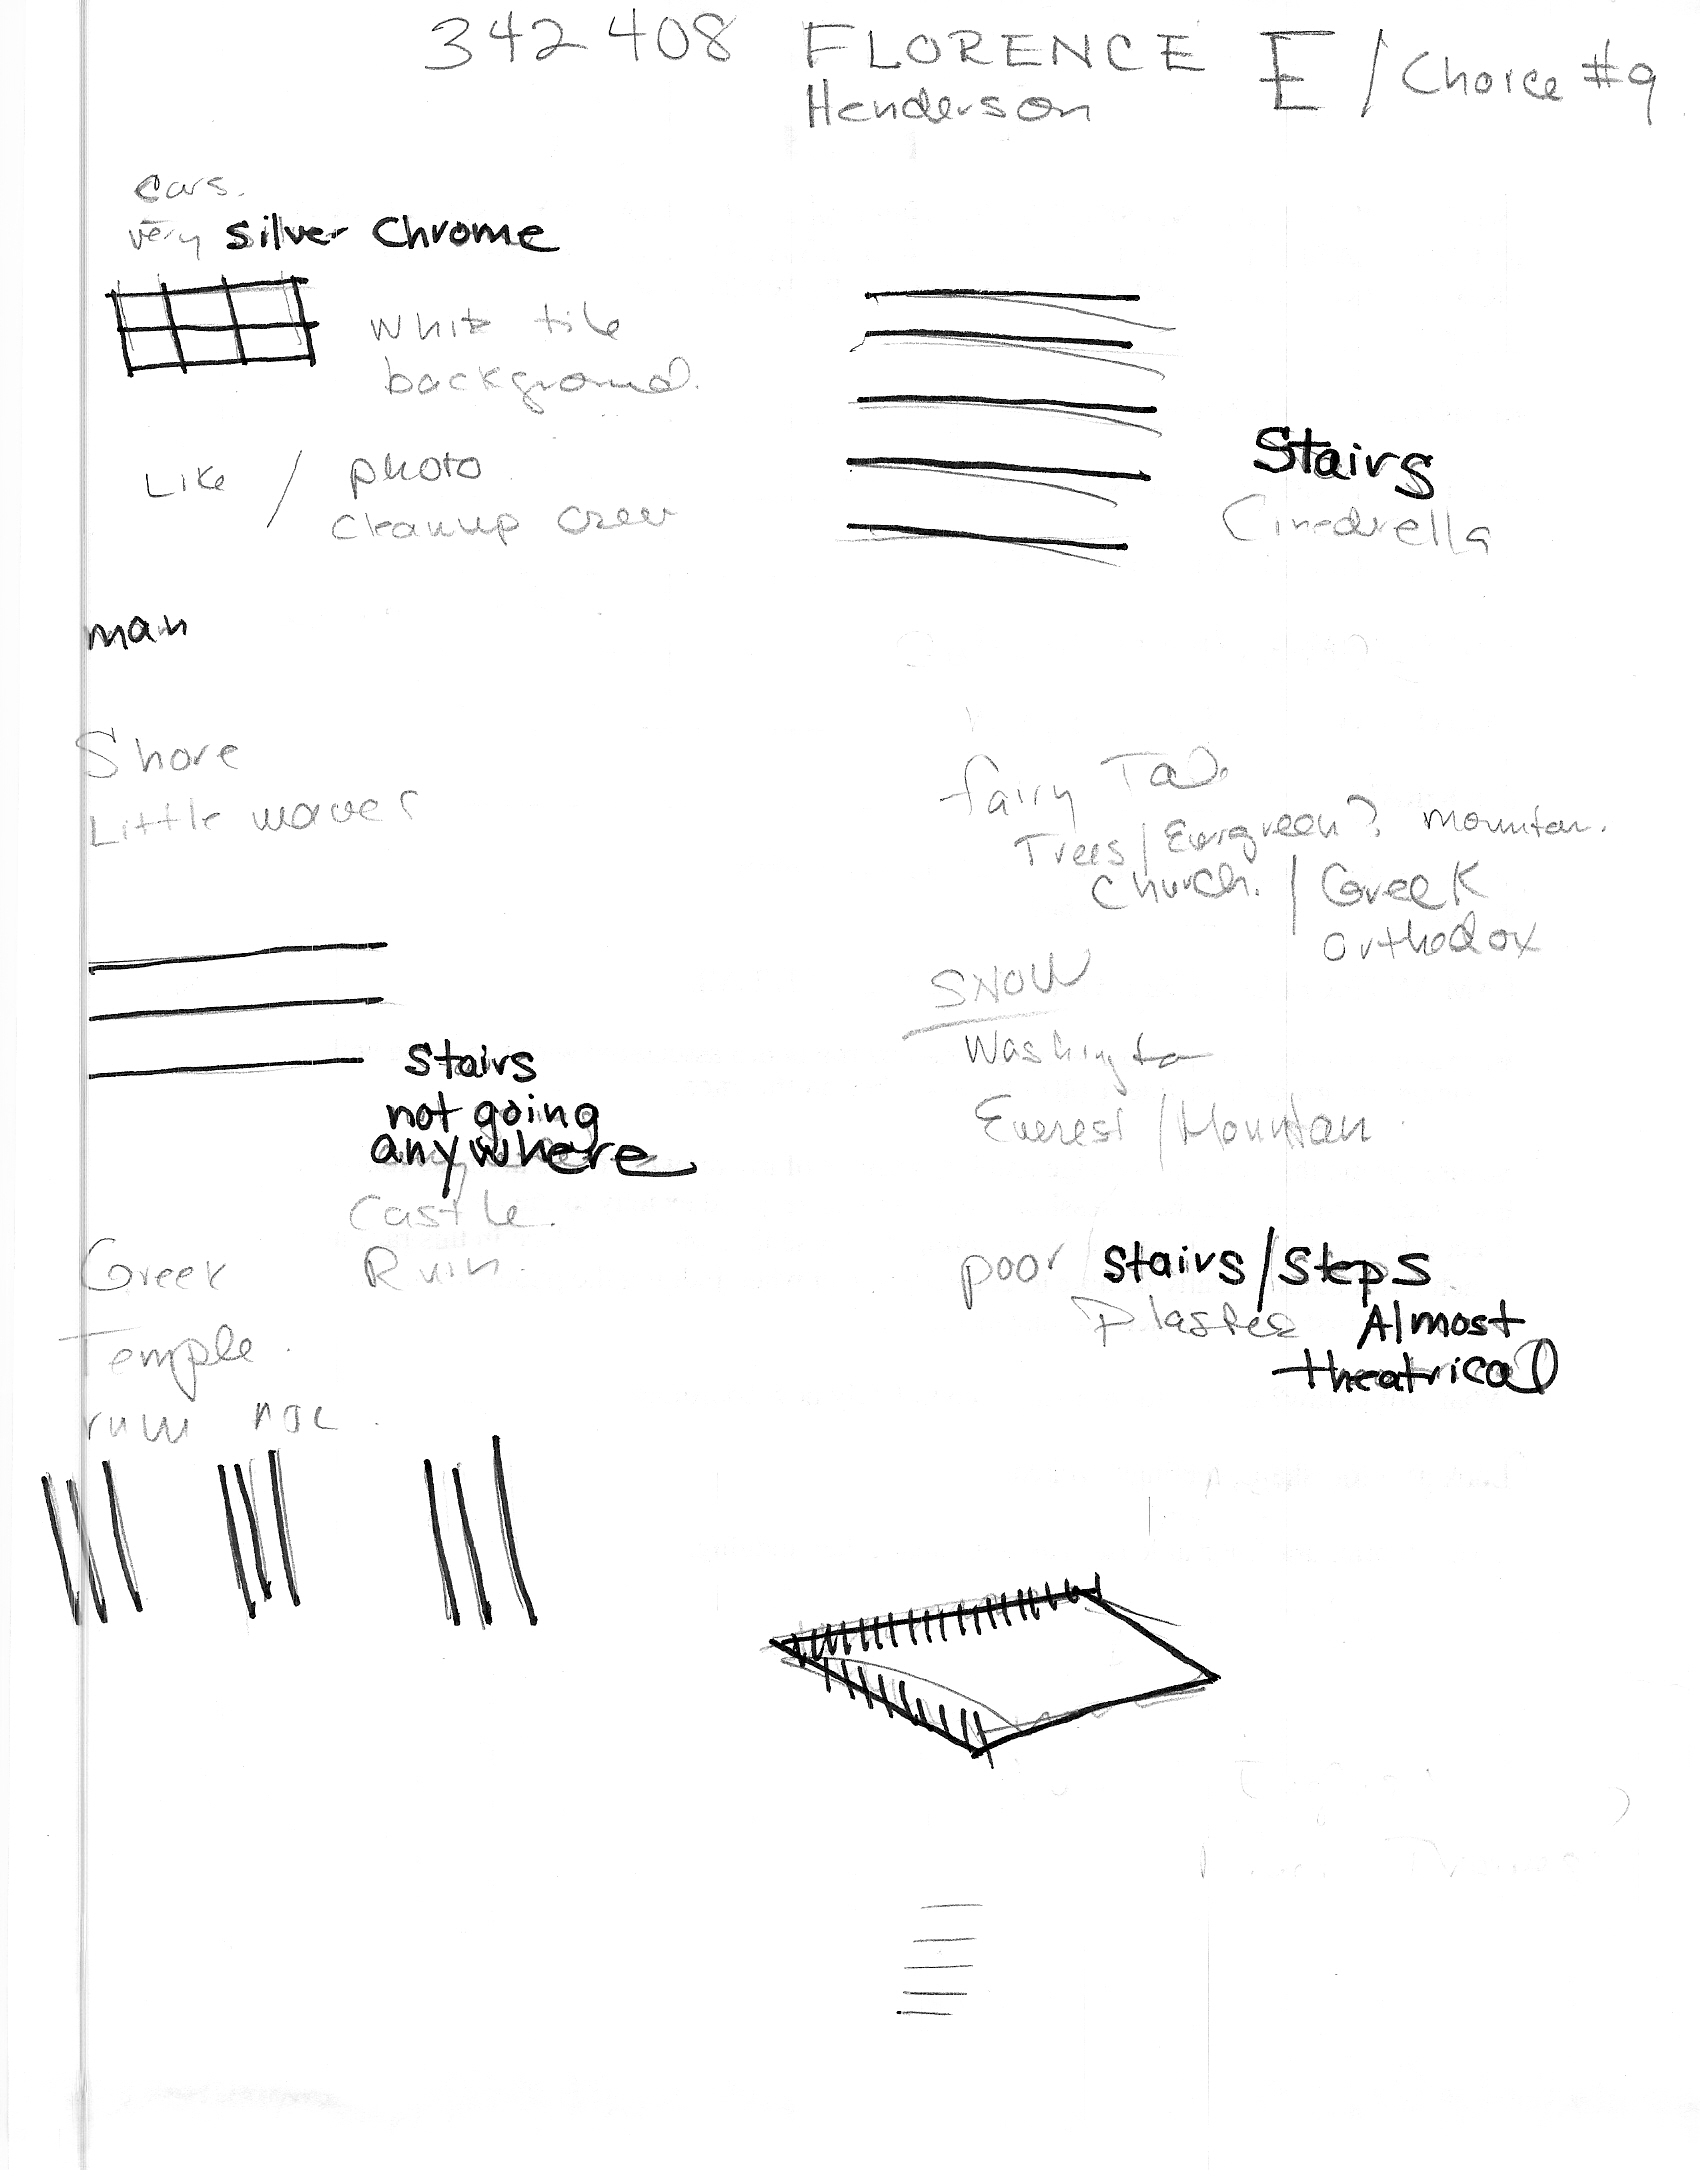 342 408 FLORENCE E / Choice #9
Henderson
cars.
very silver Chrome
white tile
background.
Like / photo
cleanup crew
Stairs
Cinedrella
man
Shore
Little waves
fairy Tal
Trees / Evergreen? mountan.
Church. / Greek
Orthodox
SNOW
Washington
Everest / Mountan
Stairs
not going
anywhere
Castle.
Greek Ruin.
Temple.
poor Stairs / Steps
Plaster Almost
theatrical